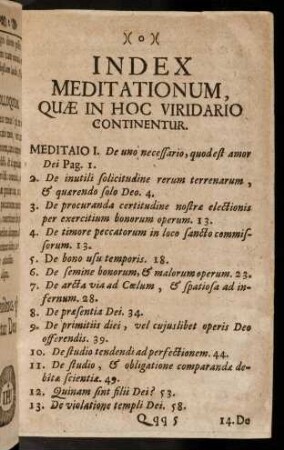 )(o)(
INDEX
MEDITATIONUM,
QUÆ IN HOC VIRIDARIO
CONTINENTUR.
MEDITAIO I. De uno necessario, quod est amor
Dei Pag. 1.
2. De inutili solicitudine rerum terrenarum,
& quærendo solo Deo. 4.
3. De procuranda certitudine nostræ electionis
per exercitium bonorum operum. 13.
4. De timore peccatorum in loco sancto commis-
sorum. 13.
5. De bono usu temporis. 18.
6. De semine bonorum, & malorum operum. 23.
7. De arcta via ad Cœlum, & spatiosa ad in-
fernum. 28.
8. De præsentia Dei. 34.
9. De primitiis diei, vel cujuslibet operis Deo
offerendis. 39.
10. De studio tendendi ad perfectionem. 44.
11. De studio, & obligatione comparandæ de-
bitæ scientiæ. 49.
12. Quinam sint filii Dei? 53.
13. De violatione templi Dei. 58.
Qqq 5 14. De